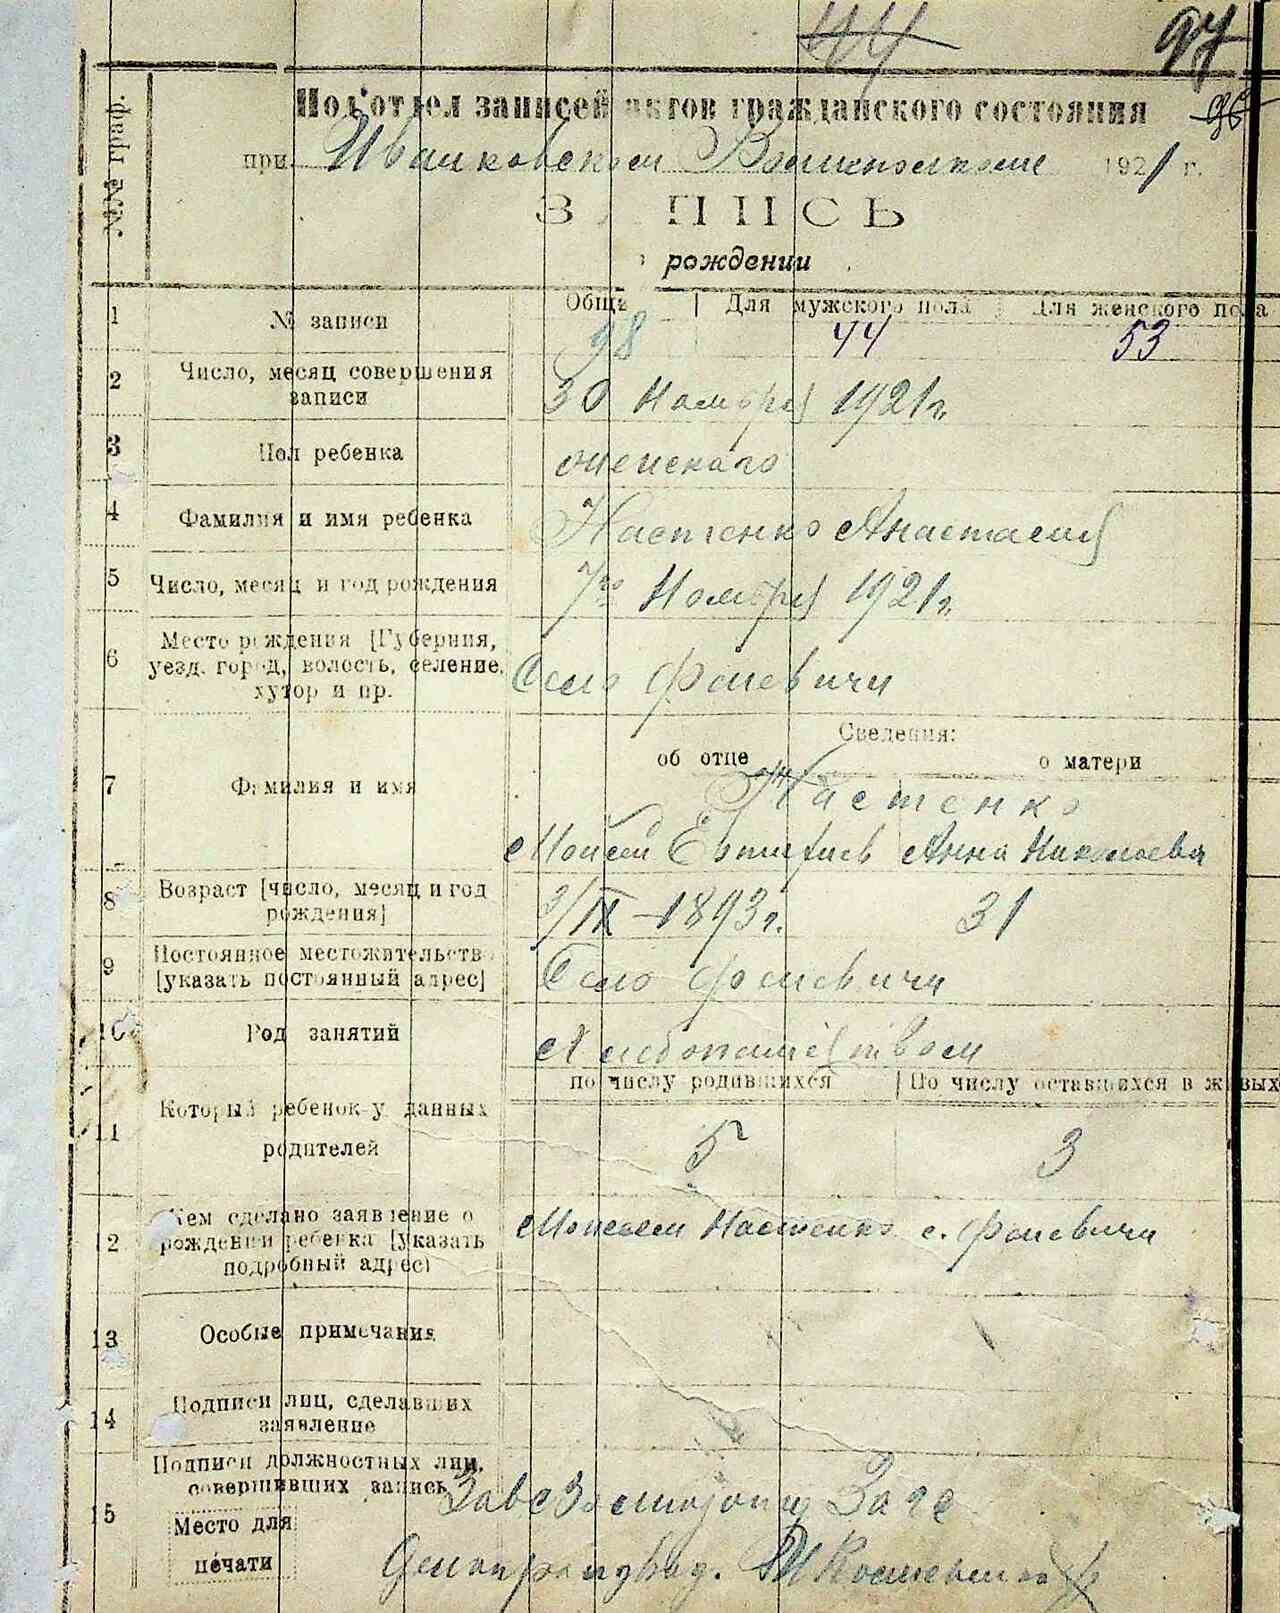 44
97
Подотдел записей актов гражданского состояния
96
при Иванковском Волисполкоме 1921 г.
ЗАПИСЬ
рождении
№№ граф.
1 № записи
Общ. Для мужского пола Для женского пола
98 44 53
2 Число, месяц совершения записи
30 Ноября 1921 г.
3 Пол ребенка
женского
4 Фамилия и имя ребенка
Настенко Анастасия
5 Число, месяц и год рождения
7го Ноября 1921 г.
6 Место рождения [Губерния, уезд. город, волость, селение, хутор и пр.
Село Феневичи
Сведения:
об отце о матери
7 Фамилия и имя
Настенко
Моисей Анна Николаева
8 Возраст [число, месяц и год рождения]
3/IX - 1893 г. 31
9 Постоянное местожительство [указать постоянный адрес]
Село Феневичи
10 Род занятий
Хлебопашеством
по числу родившихся По числу оставшихся в живых
11 Который ребенок у данных родителей
5 3
12 Кем сделано заявление о рождении ребенка [указать подробный адрес)
Моисеем Настенко с. Феневичи
13 Особые примечания
14 Подписи лиц, сделавших заявление
15 Подписи должностных лиц, совершивших запись
Место для печати